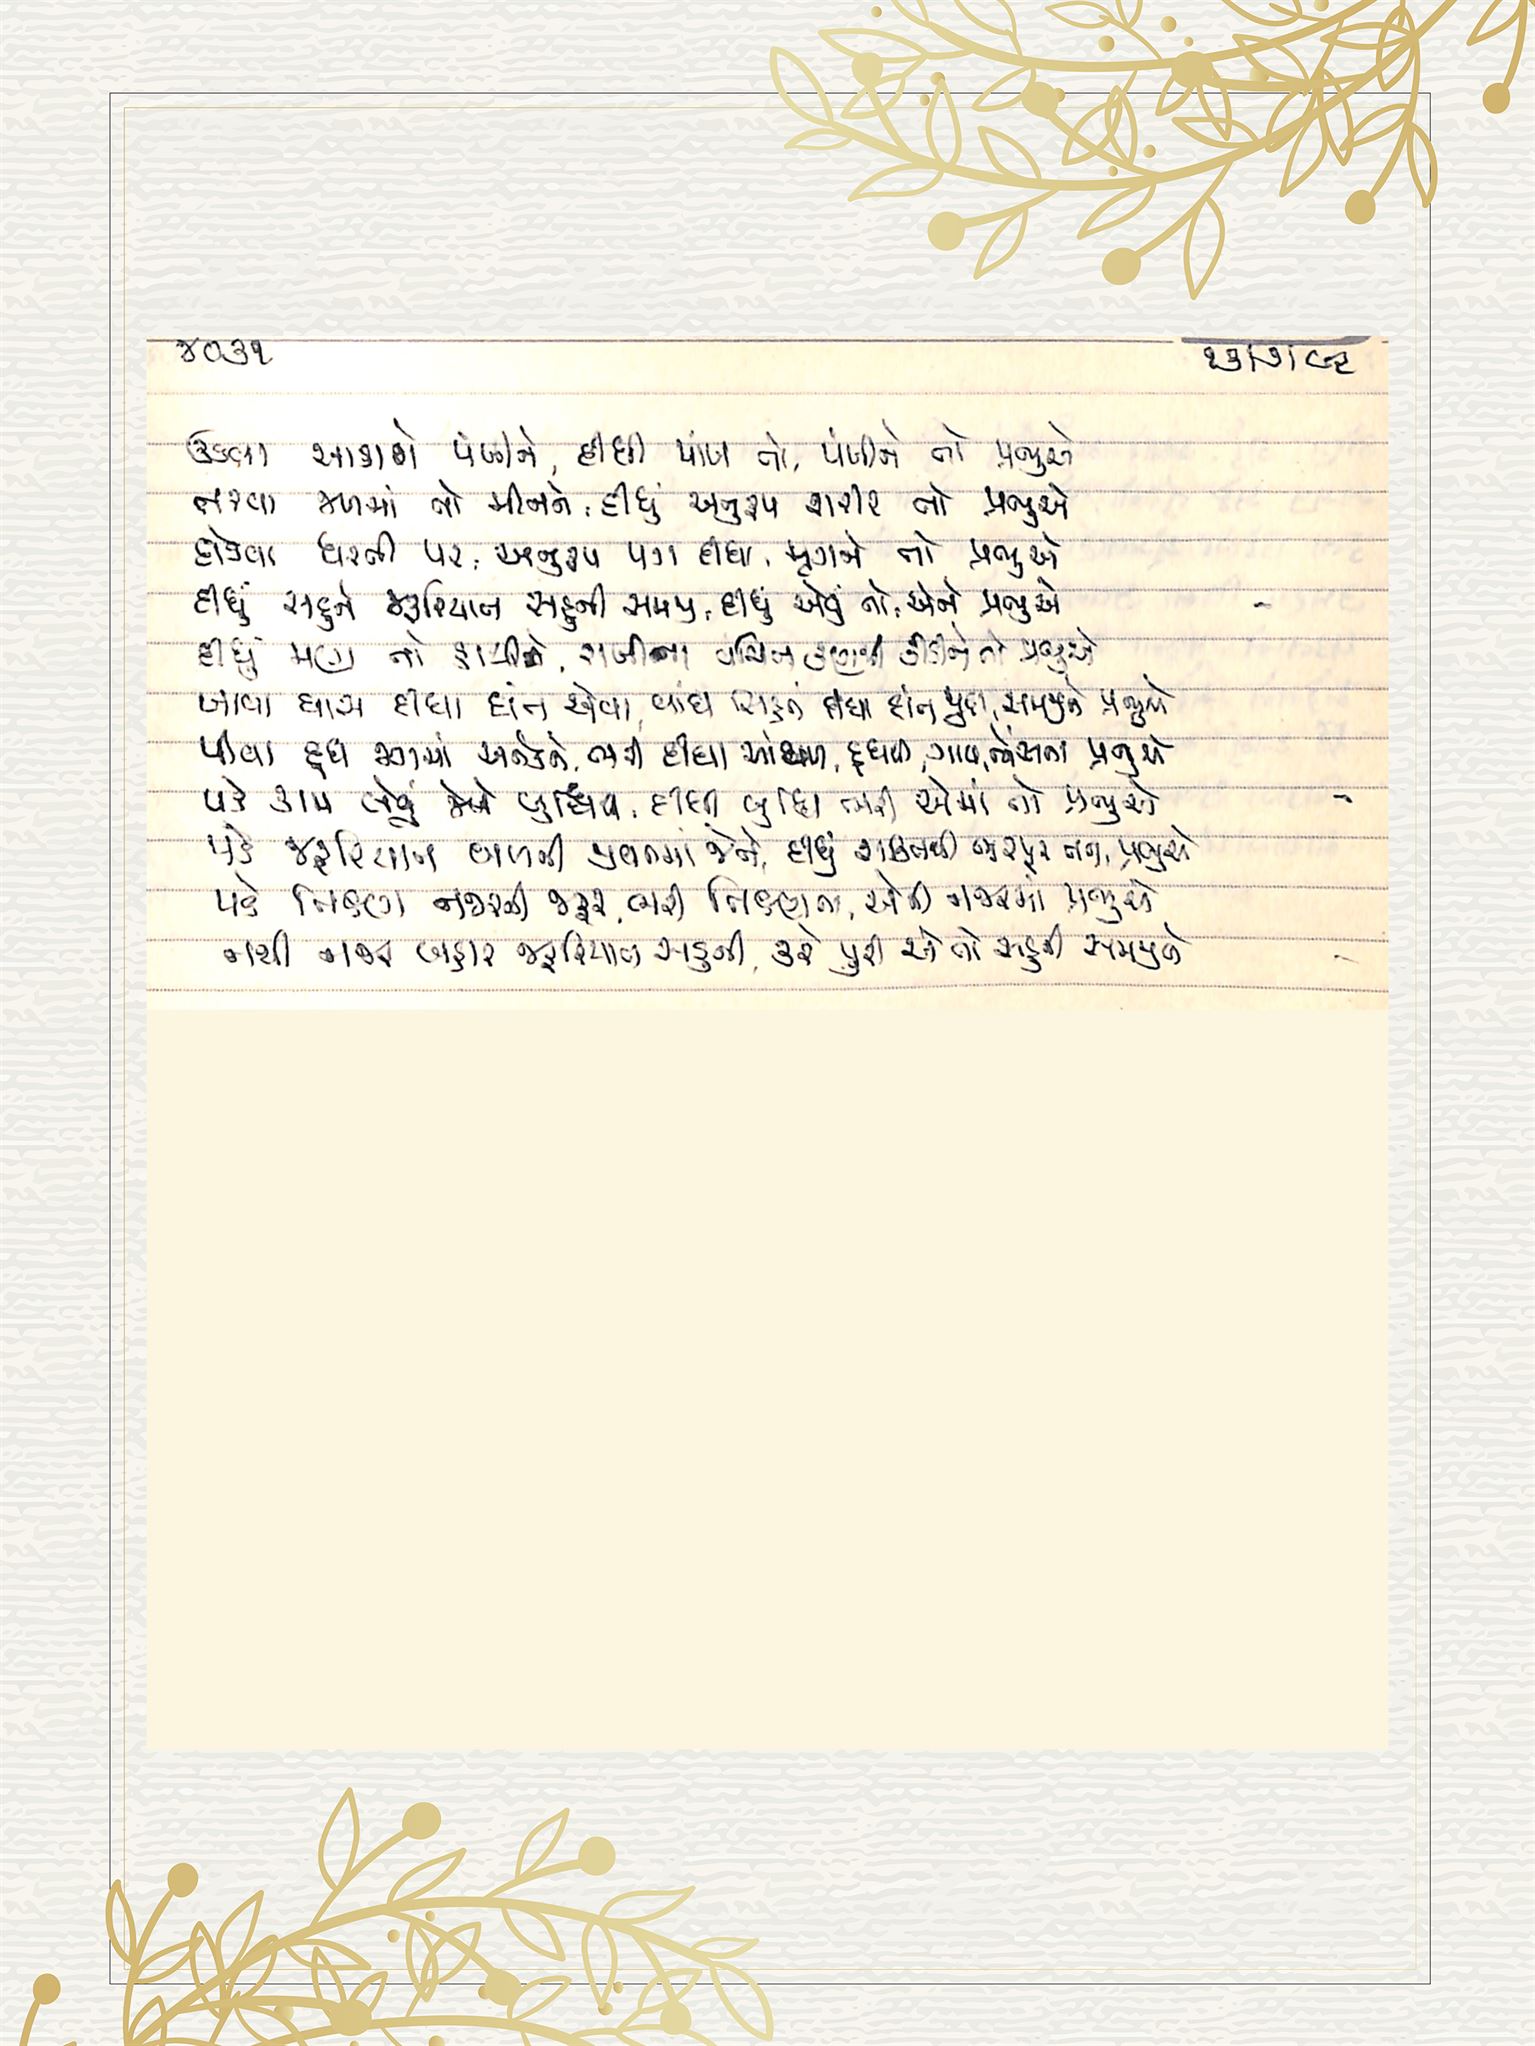 ૪૦૩૧
ઉડવા આકાશે પંખીને, દીધી પાંખ તો, પંખીને તો પ્રભુએ
તરવા જળમાં તો મીનને, દીધું અનુરૂપ શરીર તો પ્રભુએ
દોડવા ધરતી પર, અનુરૂપ પગ દીધા, મૃગને તો પ્રભુએ
દીધું સહુને જરૂરિયાત સહુની સમજી, દીધું એવું તો, એને પ્રભુએ
દીધું મણ તો હાથીને, રાખી ના વંચિત કણથી કીડીને તો પ્રભુએ
ખાવા ઘાસ દીધા દાંત એવા, વાઘ સિંહને દીધા દાંત જુદા, સમજીને પ્રભુએ
પીવા દૂધ જગમાં અનેકને, ભરી દીધા આંચળ, દૂધાળ, ગાય, ભેંસના પ્રભુએ
પડે કામ લેવું જેણે બુદ્ધિથી, દીધી બુદ્ધિ ભરી એમાં તો પ્રભુએ
પડે જરૂરિયાત બળની જીવનમાં જેને, દીધું શક્તિથી ભરપૂર તન, પ્રભુએ
પડે તિક્ષ્ણ નજરની જરૂર, ભરી તિક્ષ્ણતા, એની નજરમાં પ્રભુએ
નથી નજર બહાર જરૂરિયાત સહુની, કરે પુરી એ તો સહુની સમજીને